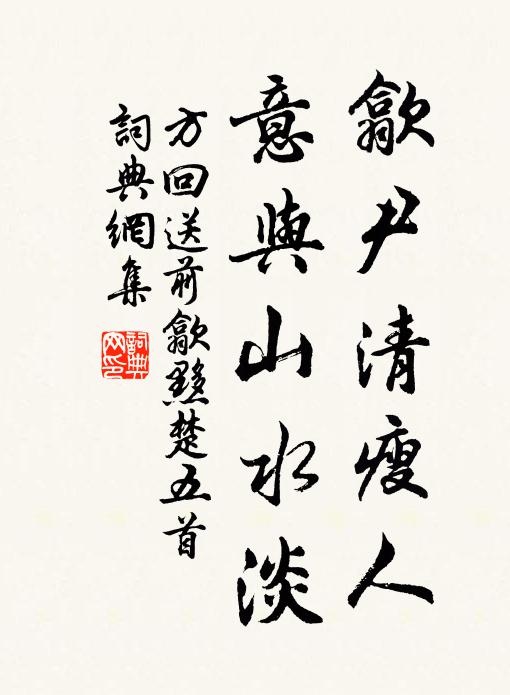 歙尹清瘦人
意與山水淡
方回送前歙黟楚五首
詞典網集
詞典網印